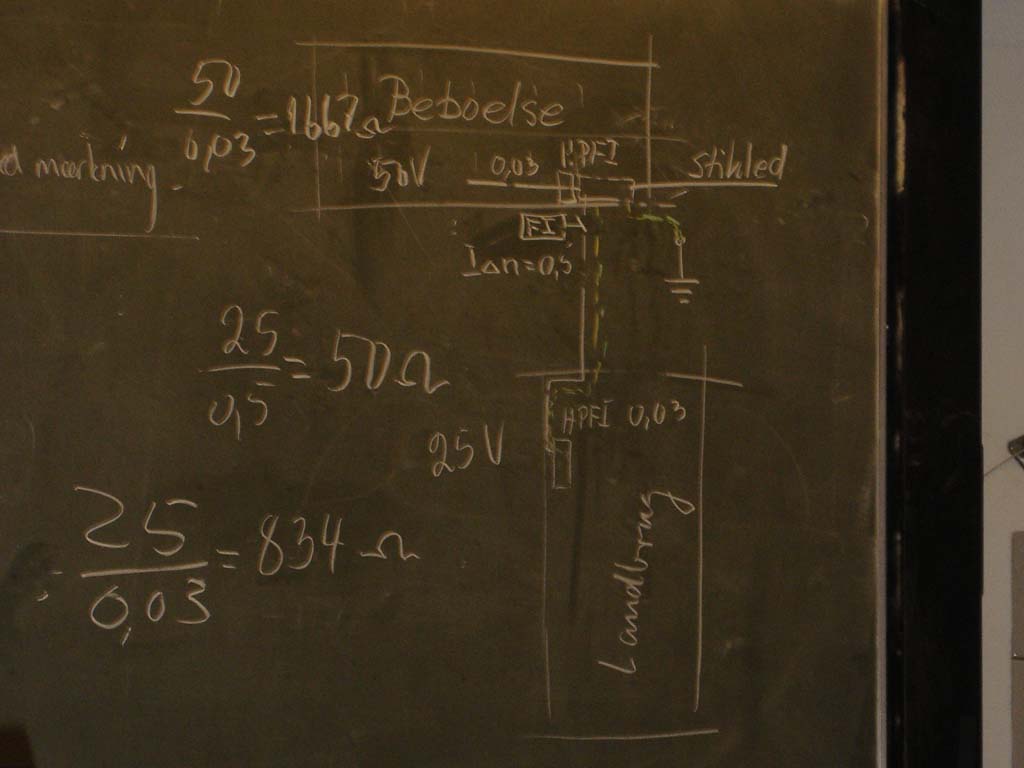 50
0,03 = 1667 Ω
Beboelse
d mærkning.
50V 0,03 HPFI Stikled
FI
I∆n=0,5
25
0,5 = 50 Ω
HPFI 0,03
25V
25
0,03 = 834 Ω
Landbrug